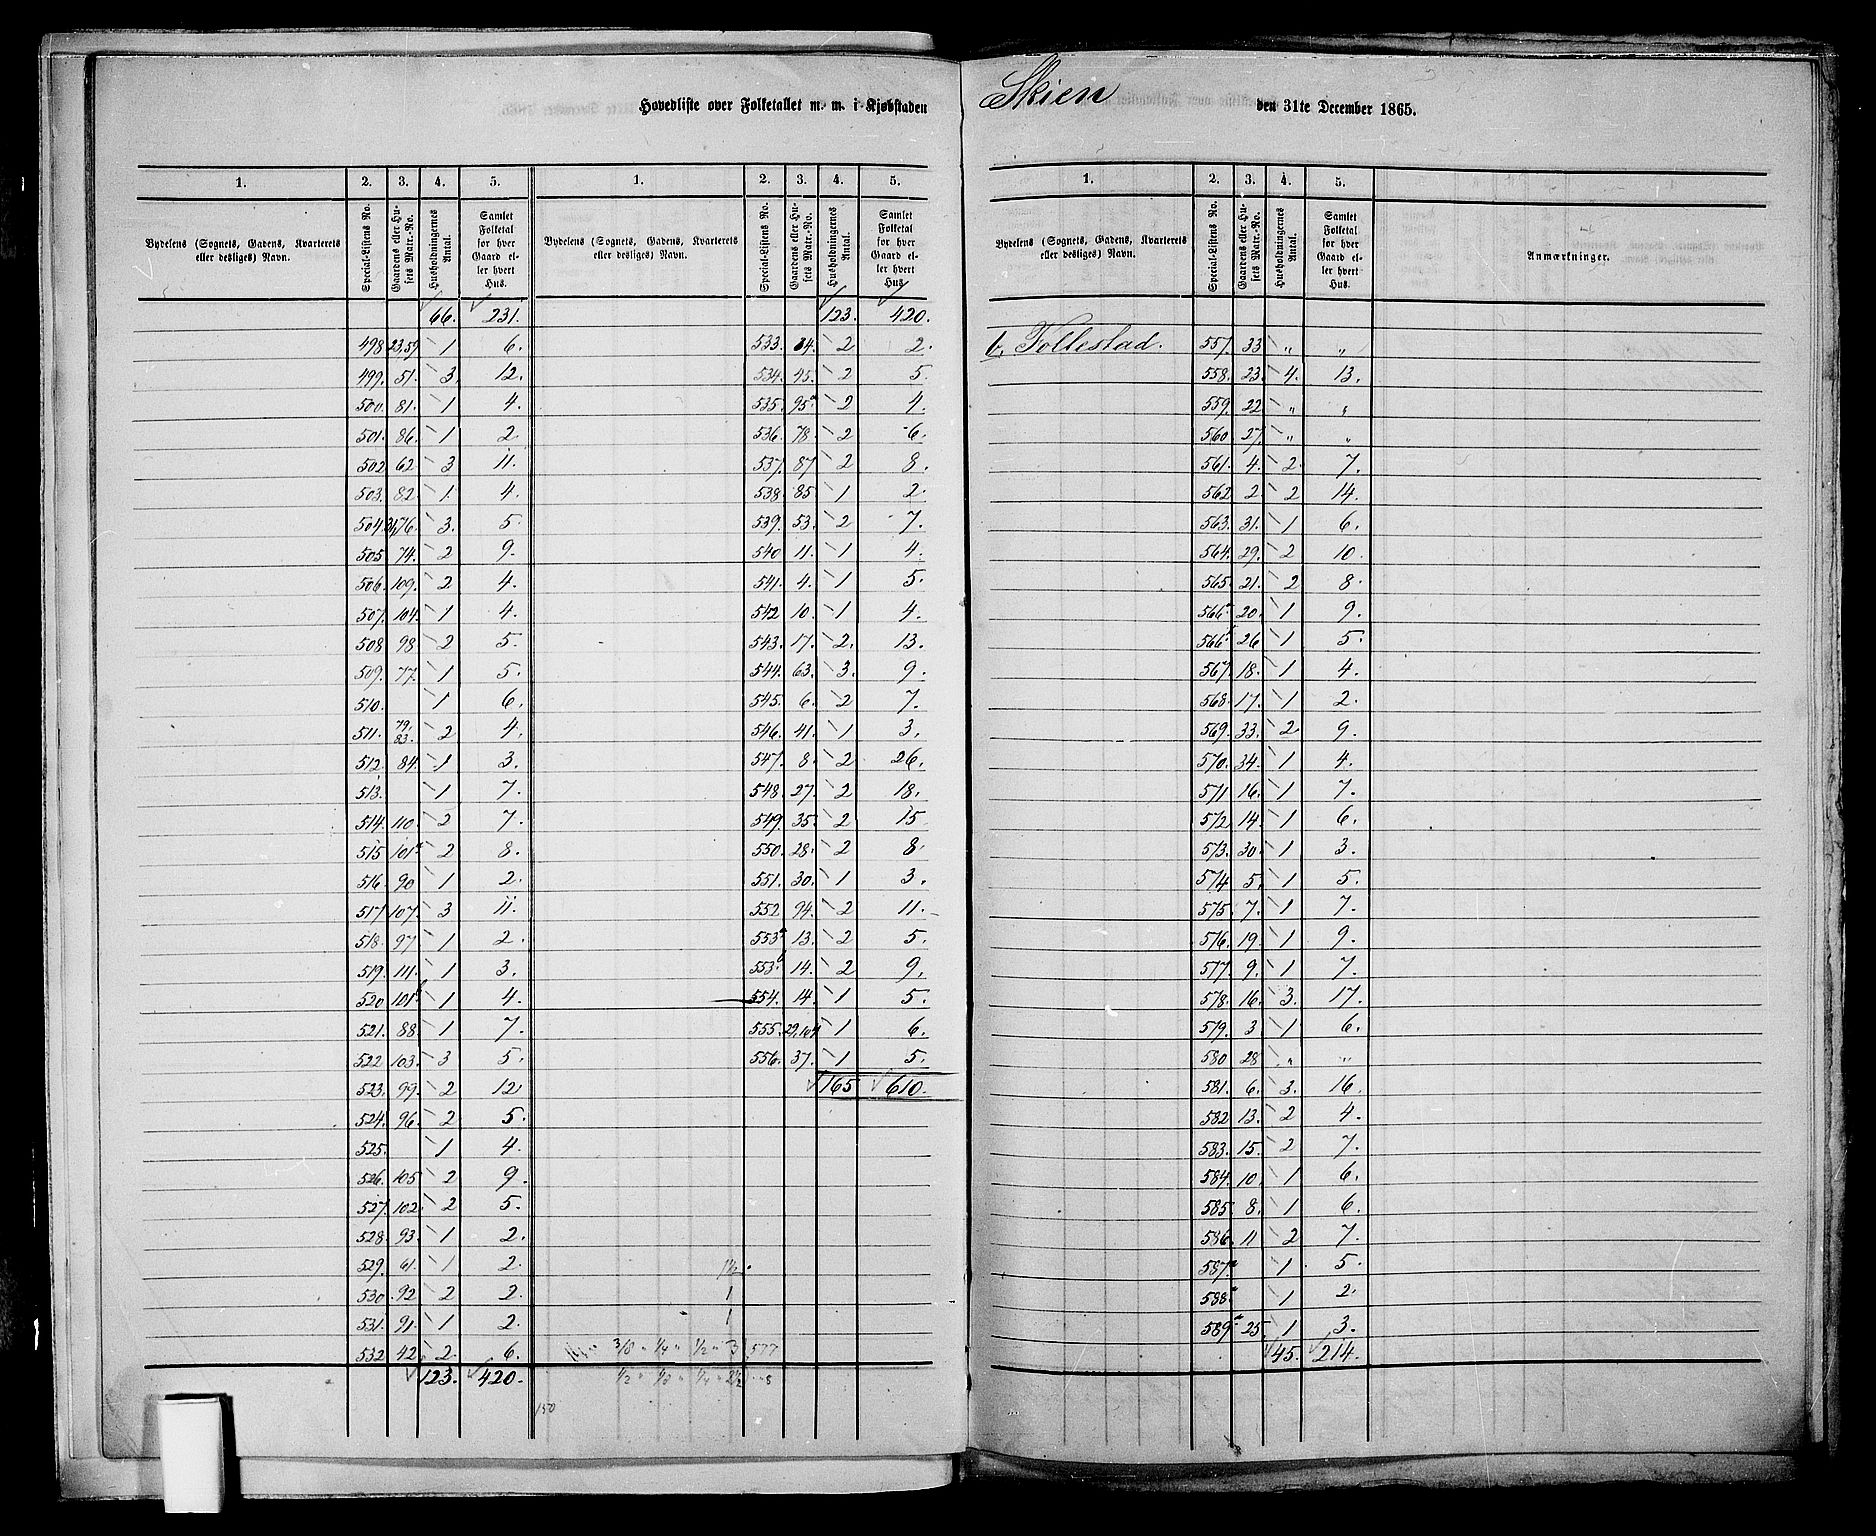 Hovedliste over Folketallet m. m. i Kjøbstaden Skien den 31te December 1865.
1. 2. 3. 4. 5. 1. 2. 3. 4. 5.
Bydelens (Sognets, Gadens, Kvarterets eller desliges) Navn. Special-Listens No. Gaardens eller Husets Matr.-No. Husholdningernes Antal. Samlet Folketal for hver Gaard eller hvert Hus.
66. 231.
498 23,59 1 6.
499. 51. 3. 12.
500. 81. 1 4.
501. 86. 1 2.
502 62 3 11.
503. 82. 1. 4.
504. 31,76. 3. 5.
505 74. 2 9.
506. 109. 2 4.
507. 104. 1 4.
508 98 2 5.
509. 77. 1 5.
510. 1 6.
511. 79. 83. 2 4.
512. 84. 1 3.
513. 1 7.
514. 110. 2 7.
515 101a 2 8.
516. 90 1 2.
517 107. 3 11.
518. 97 1 2.
519. 111. 1 3.
520 101b 1 4.
521. 88. 1 7.
522 103. 3 5.
523. 99. 2 12
524. 96. 2 5.
525. 1 4.
526. 105 2 9.
527. 102 2 5.
528. 93. 1 2.
529. 61. 1 2.
530 92 2 2.
531. 91. 1 2.
532 42 2. 6.
123. 420.
Bydelens (Sognets, Gadens, Kvarterets eller desliges) Navn. Special-Listens No. Gaardens eller Husets Matr.-No. Husholdningernes Antal. Samlet Folketal for hver Gaard eller hvert Hus.
123. 420.
533. 34. 2 2.
534. 45. 2 5.
535. 95a 2 4.
536. 78. 2 6.
537. 87 2 8.
538. 85 1 2.
539. 53. 2 7.
540 11. 1 4.
541. 4. 1 5.
542 10. 1 4.
543. 17. 2. 13.
544. 63. 3. 9.
545. 6. 2 7.
546. 41. 1 3.
547. 8. 2 26.
548. 27. 2 18.
549. 35. 2 15
550. 28. 2 8.
551. 30. 1 3.
552 94. 2 11.
553a 13. 2 5.
553b 14. 2 9.
554. 14. 1 5.
555. 29,104 1 6.
556. 37. 1 5.
165 610.
1
1
3/8 " 1/4 " 1/2 " 3 577
150
1. 2. 3. 4. 5.
Bydelens (Sognets, Gadens, Kvarterets eller desliges) Navn. Special-Listens No. Gaardens eller Husets Matr.-No. Husholdningernes Antal. Samlet Folketal for hver Gaard eller hvert Hus. Anmærkninger.
b. Follestad. 557. 33 " "
558. 23. 4. 13.
559. 22 " "
560 27. " "
561. 4. 2. 7.
562 2. 2 14.
563. 31. 1 6.
564. 29. 2 10.
565. 21. 2 8.
566a 20. 1 9.
566b 26 1 5.
567. 18. 1 4.
568. 17. 1 2.
569. 33. 2 9.
570. 34. 1 4.
571 16. 1 7.
572 14. 1 6.
573. 30. 1 3.
574 5. 1 5.
575. 7. 1 7.
576. 19. 1 9.
577. 9. 1 7.
578. 16. 3. 17.
579. 3 1 6.
580 28 " "
581. 6. 3. 16
582 13. 2 4.
583. 15. 2 7.
584. 10. 1 6.
585. 8. 1 6.
586. 11 2 7.
587. 1 5.
588. 1 2.
589. 25. 1 3.
45. 214.